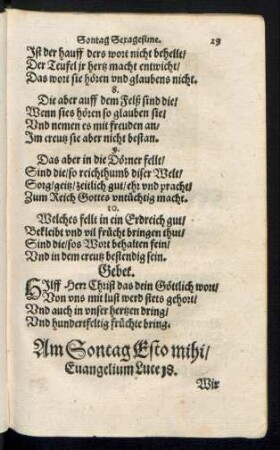 Sontag Sexagesime. 29
Ist der hauff ders wort nicht behelt/
Der Teufel jr hertz macht entwicht/
Das wort sie hören vnd glaubens nicht.
8.
Die aber auff dem Felß sind die/
Wenn sies hören so glauben sie/
Vnd nemen es mit freuden an/
Im creutz sie aber nicht bestan.
9.
Das aber in die Dörner fellt/
Sind die/so reichthumb diser Welt/
Sorg/geitz/zeitlich gut/ehr vnd pracht/
Zum Reich Gottes vntüchtig macht.
10.
Welchs fellt in ein Erdreich gut/
Bekleibt vnd vil frücht bringen thut/
Sind die/sos Wort behalten fein/
Vnd in dem creutz bestendig sein.
Gebet.
Hilff Herr Christ das dein Göttlich wort/
Von vns mit lust werd stets gehort/
Vnd auch in vnser hertzen dring/
Vnd hundertfeltig früchte bring.
Am Sontag Esto mihi/
Euangelium Luce 18.
Wir